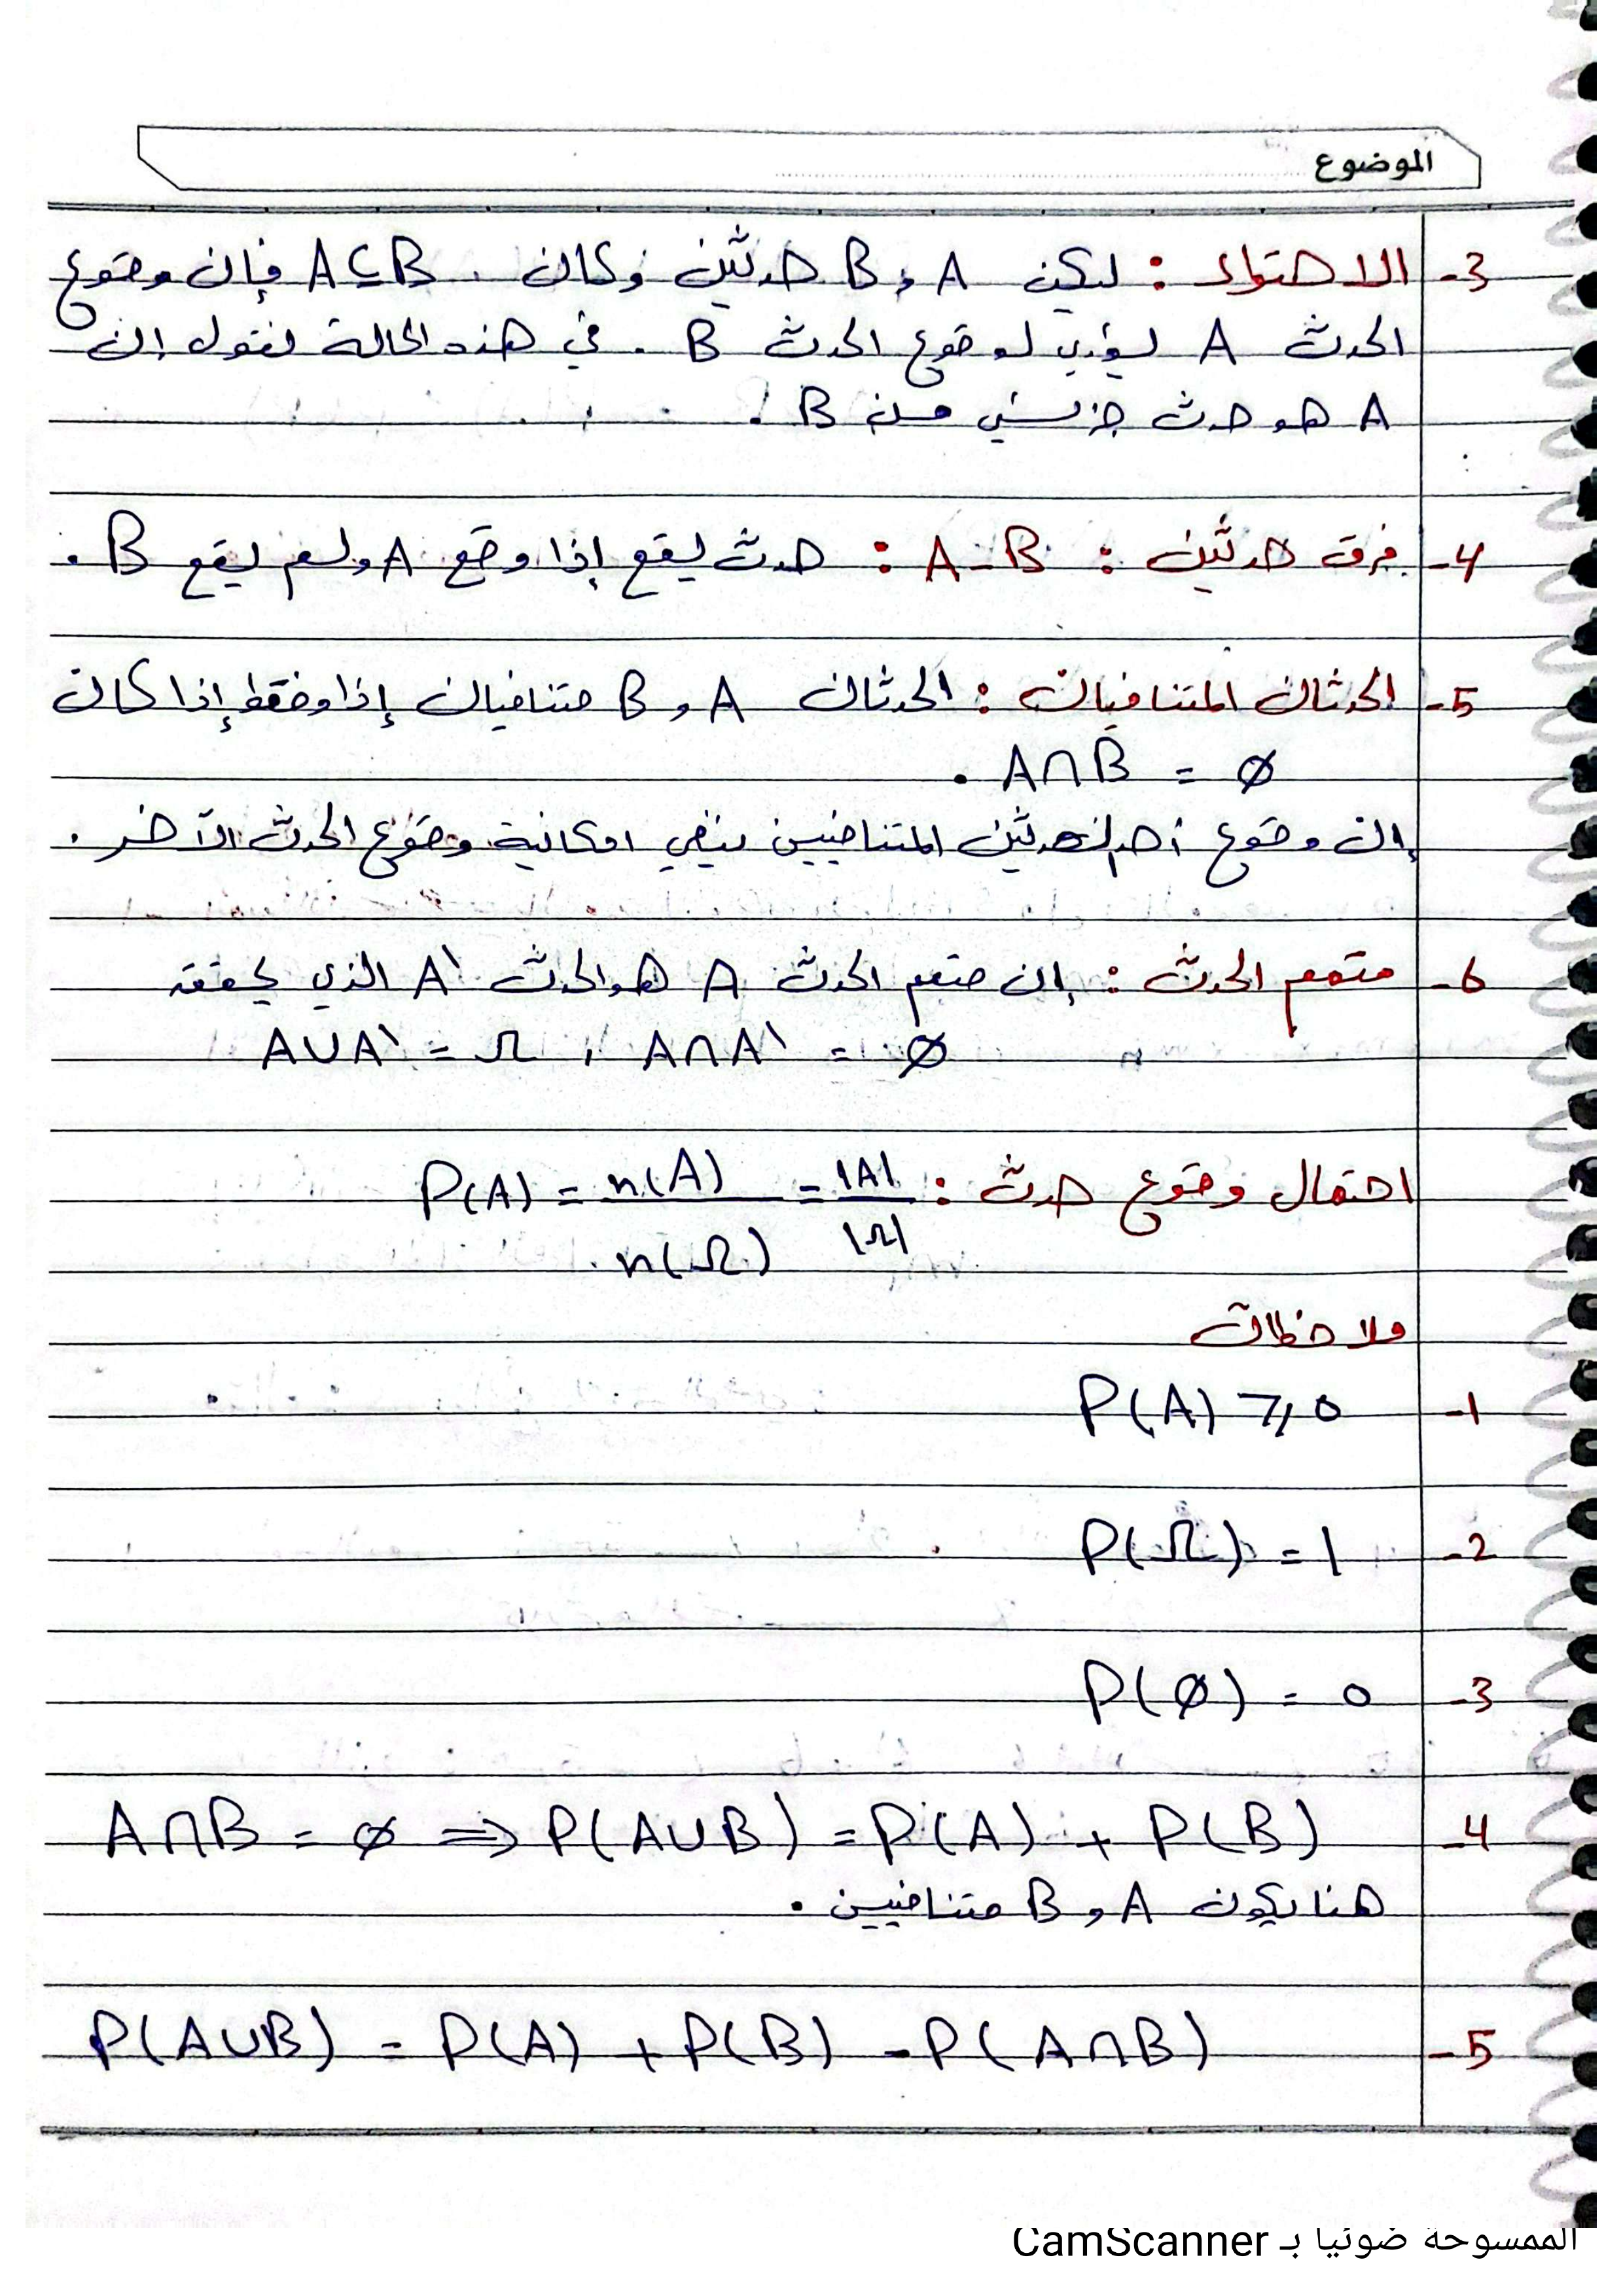 الموضوع
3- الاحتواء : ليكن A و B حدثين وكان A⊆B فإن وقوع
الحدث A يؤدي لوقوع الحدث B . في هذه الحالة نقول إن
A هو حدث جزئي من B .
4- فرق حدثين : A-B : حدث يقع إذا وقع A ولم يقع B .
5- الحدثان المتنافيان : الحدثان A و B متنافيان إذا وفقط إذا كان
A∩B = ∅ .
إن وقوع أحد الحدثين المتنافيين ينفي امكانية وقوع الحدث الآخر .
6- متمم الحدث : إن متمم الحدث A هو الحدث A' الذي يحقق
A∪A' = Ω , A∩A' = ∅
احتمال وقوع حدث : P(A) = n(A)/n(Ω) = |A|/|Ω|
ملاحظات
1- P(A) ⩾ 0
2- P(Ω) = 1
3- P(∅) = 0
4- A∩B = ∅ ⇒ P(A∪B) = P(A) + P(B)
هنا يكون A و B متنافيين .
5- P(A∪B) = P(A) + P(B) - P(A∩B)
الممسوحة ضوئيا بـ CamScanner